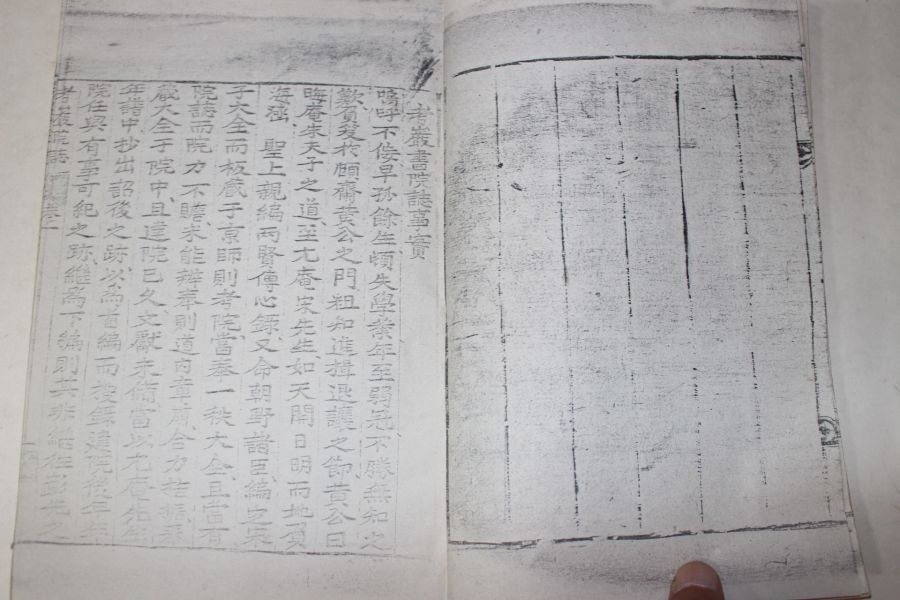 考巖書院誌事實
嗚呼不佞早孤餘生頓失學業年至弱冠不勝無知之
歎負笈於顧齋黃公之門粗知進揖退讓之節黃公曰
晦庵朱夫子之道至尤庵宋先生如天開日明而地負
海涵 聖上親編兩賢傳心錄又命朝野諸臣編之宋
子大全而板藏于京師則考院當奉一秩大全且當有
院誌而院力不贍未能辨奉則道內章甫合力 奉
藏大全于院中且建院已久文獻未備當以尤庵先生
年譜中抄出 後之跡以而首編而按錄建院後年
院任與有事可紀之跡繼爲下編則其非 之
考巖 誌